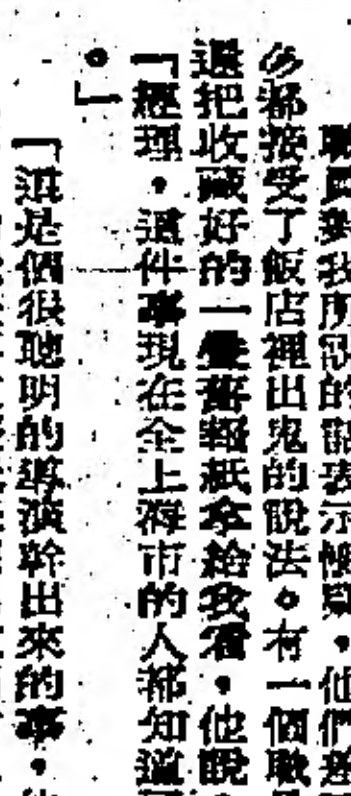 職員對我所說的話表示懷疑，他們差
多都接受了飯店裡出鬼的說法。有一個職
還把收藏好的一疊舊報紙拿給我看，他說
「經理，這件事現在全上海市的人都知道
。」
「這是個很聰明的導演幹出來的事，